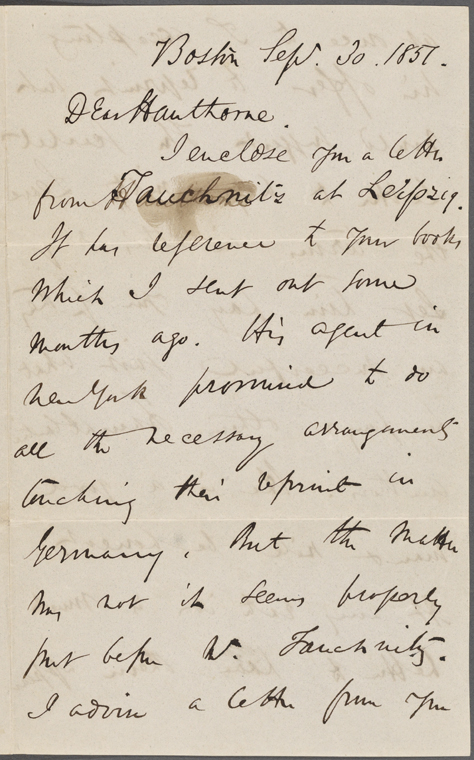 Boston Sept. 30. 1851.
Dear Hawthorne.
I enclose you a letter
from Tauchnitz at Leipzig.
It has reference to your books
which I sent out some
months ago. His agent in
New York promised to do
all the necessary arrangements
touching their reprint in
Germany. But the matter
was not it seems properly
put before Tauchnitz.
I advise a letter from you